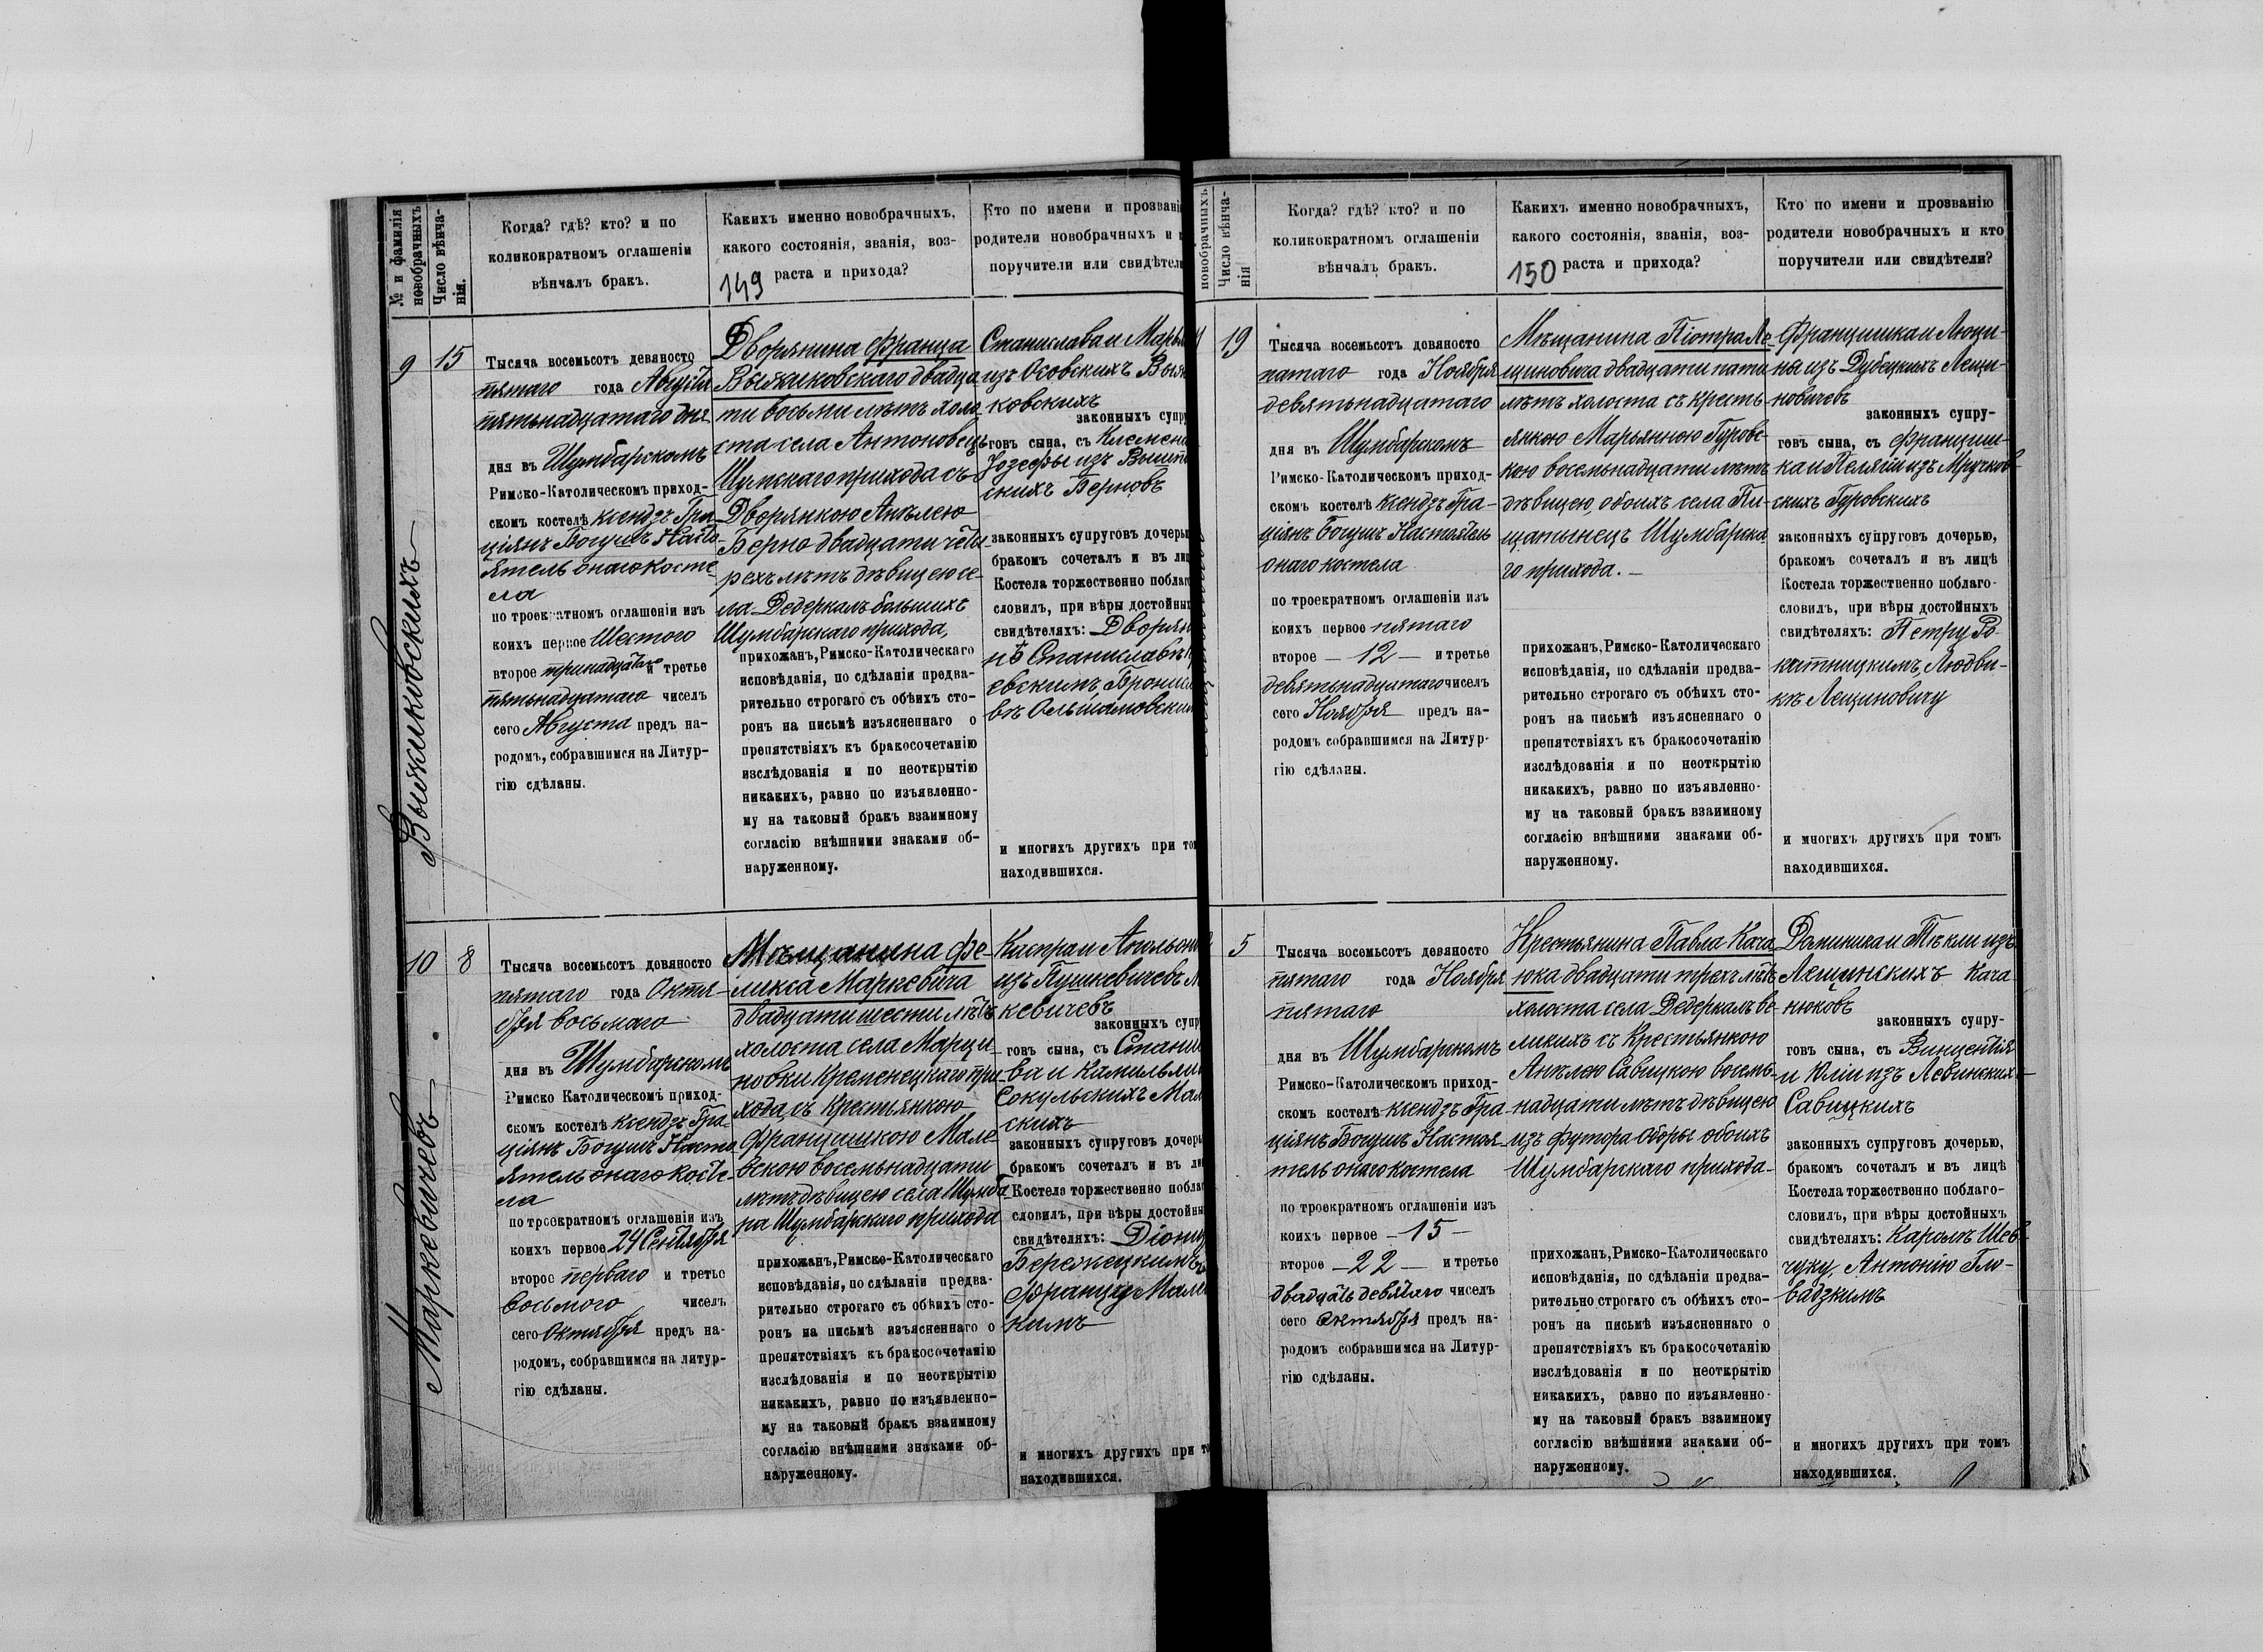 № и фамилія
новобрачныхъ
Число вѣнча-
нія.
Когда? гдѣ? кто? и по
коликократномъ оглашеніи
вѣнчалъ бракъ.
Какихъ именно новобрачныхъ,
какого состоянія, званія, воз-
раста и прихода?
149
Кто по имени и прозвані
родители новобрачныхъ и
поручители или свидѣтел
9
15
Выжиковскихъ
Тысяча восемьсотъ девяносто
пятаго года Августа
пятьнадцатаго дня
дня въ Шумбарскомъ
Римско-Католическомъ приход-
скомъ костелѣ ксендзъ Гра-
ціянъ Богушъ Насто-
ятель онаго косте-
ла
по троекратномъ оглашеніи изъ
коихъ первое Шестого
второе тринадцатаго и третье
пятьнадцатаго чиселъ
сего Августа предъ на-
родомъ, собравшимся на Литур-
гію сдѣланы.
Дворянина Франца
Выжиковскаго двадца-
ти восьми лѣтъ холо-
ста села Антоновецъ
Шумскаго прихода съ
Дворянкою Анѣлею
Берно двадцати четы-
рехъ лѣтъ дѣвицею се-
ла Дедеркалъ большихъ
Шумбарскаго прихода,
прихожанъ, Римско-Католическаго
исповѣданія, по сдѣланіи предва-
рительно строгаго съ обѣихъ сто-
ронъ на письмѣ изъясненнаго о
препятствіяхъ къ бракосочетанію
изслѣдованія и по неоткрытію
никакихъ, равно по изъявленно-
му на таковый бракъ взаимному
согласію внѣшними знаками об-
наруженному.
Станислава и Марья
изъ Осовскихъ Выж
ковскихъ
законныхъ супру
говъ сына, съ Клемен
Іозефы изъ Вышп
скихъ Берновъ
законныхъ супруговъ дочерь
бракомъ сочеталъ и въ лиц
Костела торжественно поблаг
словилъ, при вѣры достойны
свидѣтеляхъ: Дворян
нѣ Станиславѣ
евскимъ Бронисла
вѣ Ольшановским
и многихъ другихъ при том
находившихся.
10
8
Маркевичевъ
Тысяча восемьсотъ девяносто
пятаго года Октя-
бря восьмаго
дня въ Шумбарскомъ
Римско Католическомъ приход-
скомъ костелѣ ксендзъ Гра-
ціянъ Богушъ Насто-
ятель онаго косте-
ла
по троекратномъ оглашеніи изъ
коихъ первое 24 Сентября
второе перваго и третье
восьмого чиселъ
сего Октября предъ на-
родомъ, собравшимся на литур-
гію сдѣланы.
Мѣщанина Фе-
ликса Маркевича
двадцати шести лѣтъ
холоста села Марци-
новки Кременецкаго при-
хода, съ Крестьянкою
Францишкою Мале-
вскою восемьнадцати
лѣтъ дѣвицею села Шумба-
ра Шумбарскаго прихода
прихожанъ, Римско-Католическаго
исповѣданія, по сдѣланіи предва-
рительно строгаго съ обѣихъ сто-
ронъ на письмѣ изъясненнаго о
препятствіяхъ къ бракосочетанію
изслѣдованія и по неоткрытію
никакихъ, равно по изъявленно-
му на таковый бракъ взаимному
согласію внѣшними знаками об-
наруженному.
Каспра и Апольони
изъ Пушкевичевъ М
кевичевъ
законныхъ супр
говъ сына, съ Стани
ва и Камильли
Сокульскихъ Мал
скихъ
законныхъ супруговъ дочерь
бракомъ сочеталъ и въ ли
Костела торжественно поблаг
словилъ, при вѣры достойны
свидѣтеляхъ: Діониз
Бережецкимъ
Францу Мале
кимъ
и многихъ другихъ при то
находившихся.
новобрачныхъ
Число вѣнча-
нія
Когда? гдѣ? кто? и по
коликократномъ оглашеніи
вѣнчалъ бракъ.
Какихъ именно новобрачныхъ,
какого состоянія, званія, воз-
раста и прихода?
150
Кто по имени и прозванію
родители новобрачныхъ и кто
поручители или свидѣтели?
19
Тысяча восемьсотъ девяносто
пятаго года Ноября
девятьнадцатаго
дня въ Шумбарскомъ
Римско-Католическомъ приход-
скомъ костелѣ ксендзъ Гра-
ціянъ Богушъ Настоятель
онаго костела
по троекратномъ оглашеніи изъ
коихъ первое пятаго
второе — 12 — и третье
девятьнадцатаго чиселъ
сего Ноября предъ на-
родомъ собравшимся на Литур-
гію сдѣланы.
Мѣщанина Піотра Ле-
щиновича двадцати пяти
лѣтъ холоста съ Кресть-
янкою Марьянною Гуровс-
кою восемьнадцати лѣтъ
дѣвицею, обоихъ села Пи-
щатынецъ Шумбарска-
го прихода. —
прихожанъ, Римско-Католическаго
исповѣданія, по сдѣланіи предва-
рительно строгаго съ обѣихъ сто-
ронъ на письмѣ изъясненнаго о
препятствіяхъ къ бракосочетанію
изслѣдованія и по неоткрытію
никакихъ, равно по изъявленно-
му на таковый бракъ взаимному
согласію внѣшними знаками об-
наруженному.
Францишка и Люци-
ны изъ Дубецкихъ Лещи-
новичевъ
законныхъ супру-
говъ сына, съ Францин-
ка и Пелягіи изъ Мручков-
скихъ Гуровскихъ
законныхъ супруговъ дочерью,
бракомъ сочеталъ и въ лицѣ
Костела торжественно поблаго-
словилъ, при вѣры достойныхъ
свидѣтеляхъ: Петру Ро-
катницкимъ, Людви-
кѣ Лещиновичу
и многихъ другихъ при томъ
находившихся.
5
Тысяча восемьсотъ девяносто
пятаго года Ноября
пятаго
дня въ Шумбарскомъ
Римско-Католическомъ приход-
скомъ костелѣ ксендзъ Гра-
ціянъ Богушъ Настоя-
тель онаго костела
по троекратномъ оглашеніи изъ
коихъ первое — 15 —
второе — 22 — и третье
двадцать девятаго чиселъ
сего Октября предъ на-
родомъ собравшимся на Литур-
гію сдѣланы.
Крестьянина Павла Кача-
нюка двадцати трехъ лѣтъ
холоста села Дедеркалъ ве-
ликихъ съ Крестьянкою
Анѣлею Савицкою восемь-
надцати лѣтъ дѣвицею
изъ футора Оборы обоихъ
Шумбарскаго прихода-
прихожанъ, Римско-Католическаго
исповѣданія, по сдѣланіи предва-
рительно строгаго съ обѣихъ сто-
ронъ на письмѣ изъясненнаго о
препятствіяхъ къ бракосочетанію
изслѣдованія и по неоткрытію
никакихъ, равно по изъявленно-
му на таковый бракъ взаимному
согласію внѣшними знаками об-
наруженному.
Доминика и Теклi изъ
Лещинскихъ Кача
нюковъ
законныхъ супру-
говъ сына, съ Винцентія
и Юліи изъ Левинскихъ
Савицкихъ
законныхъ супруговъ дочерью,
бракомъ сочеталъ и въ лицѣ
Костела торжественно поблаго-
словилъ, при вѣры достойныхъ
свидѣтеляхъ: Каролѣ Шев-
чуку, Антонію Гло-
вадзкимъ
и многихъ другихъ при томъ
находившихся.